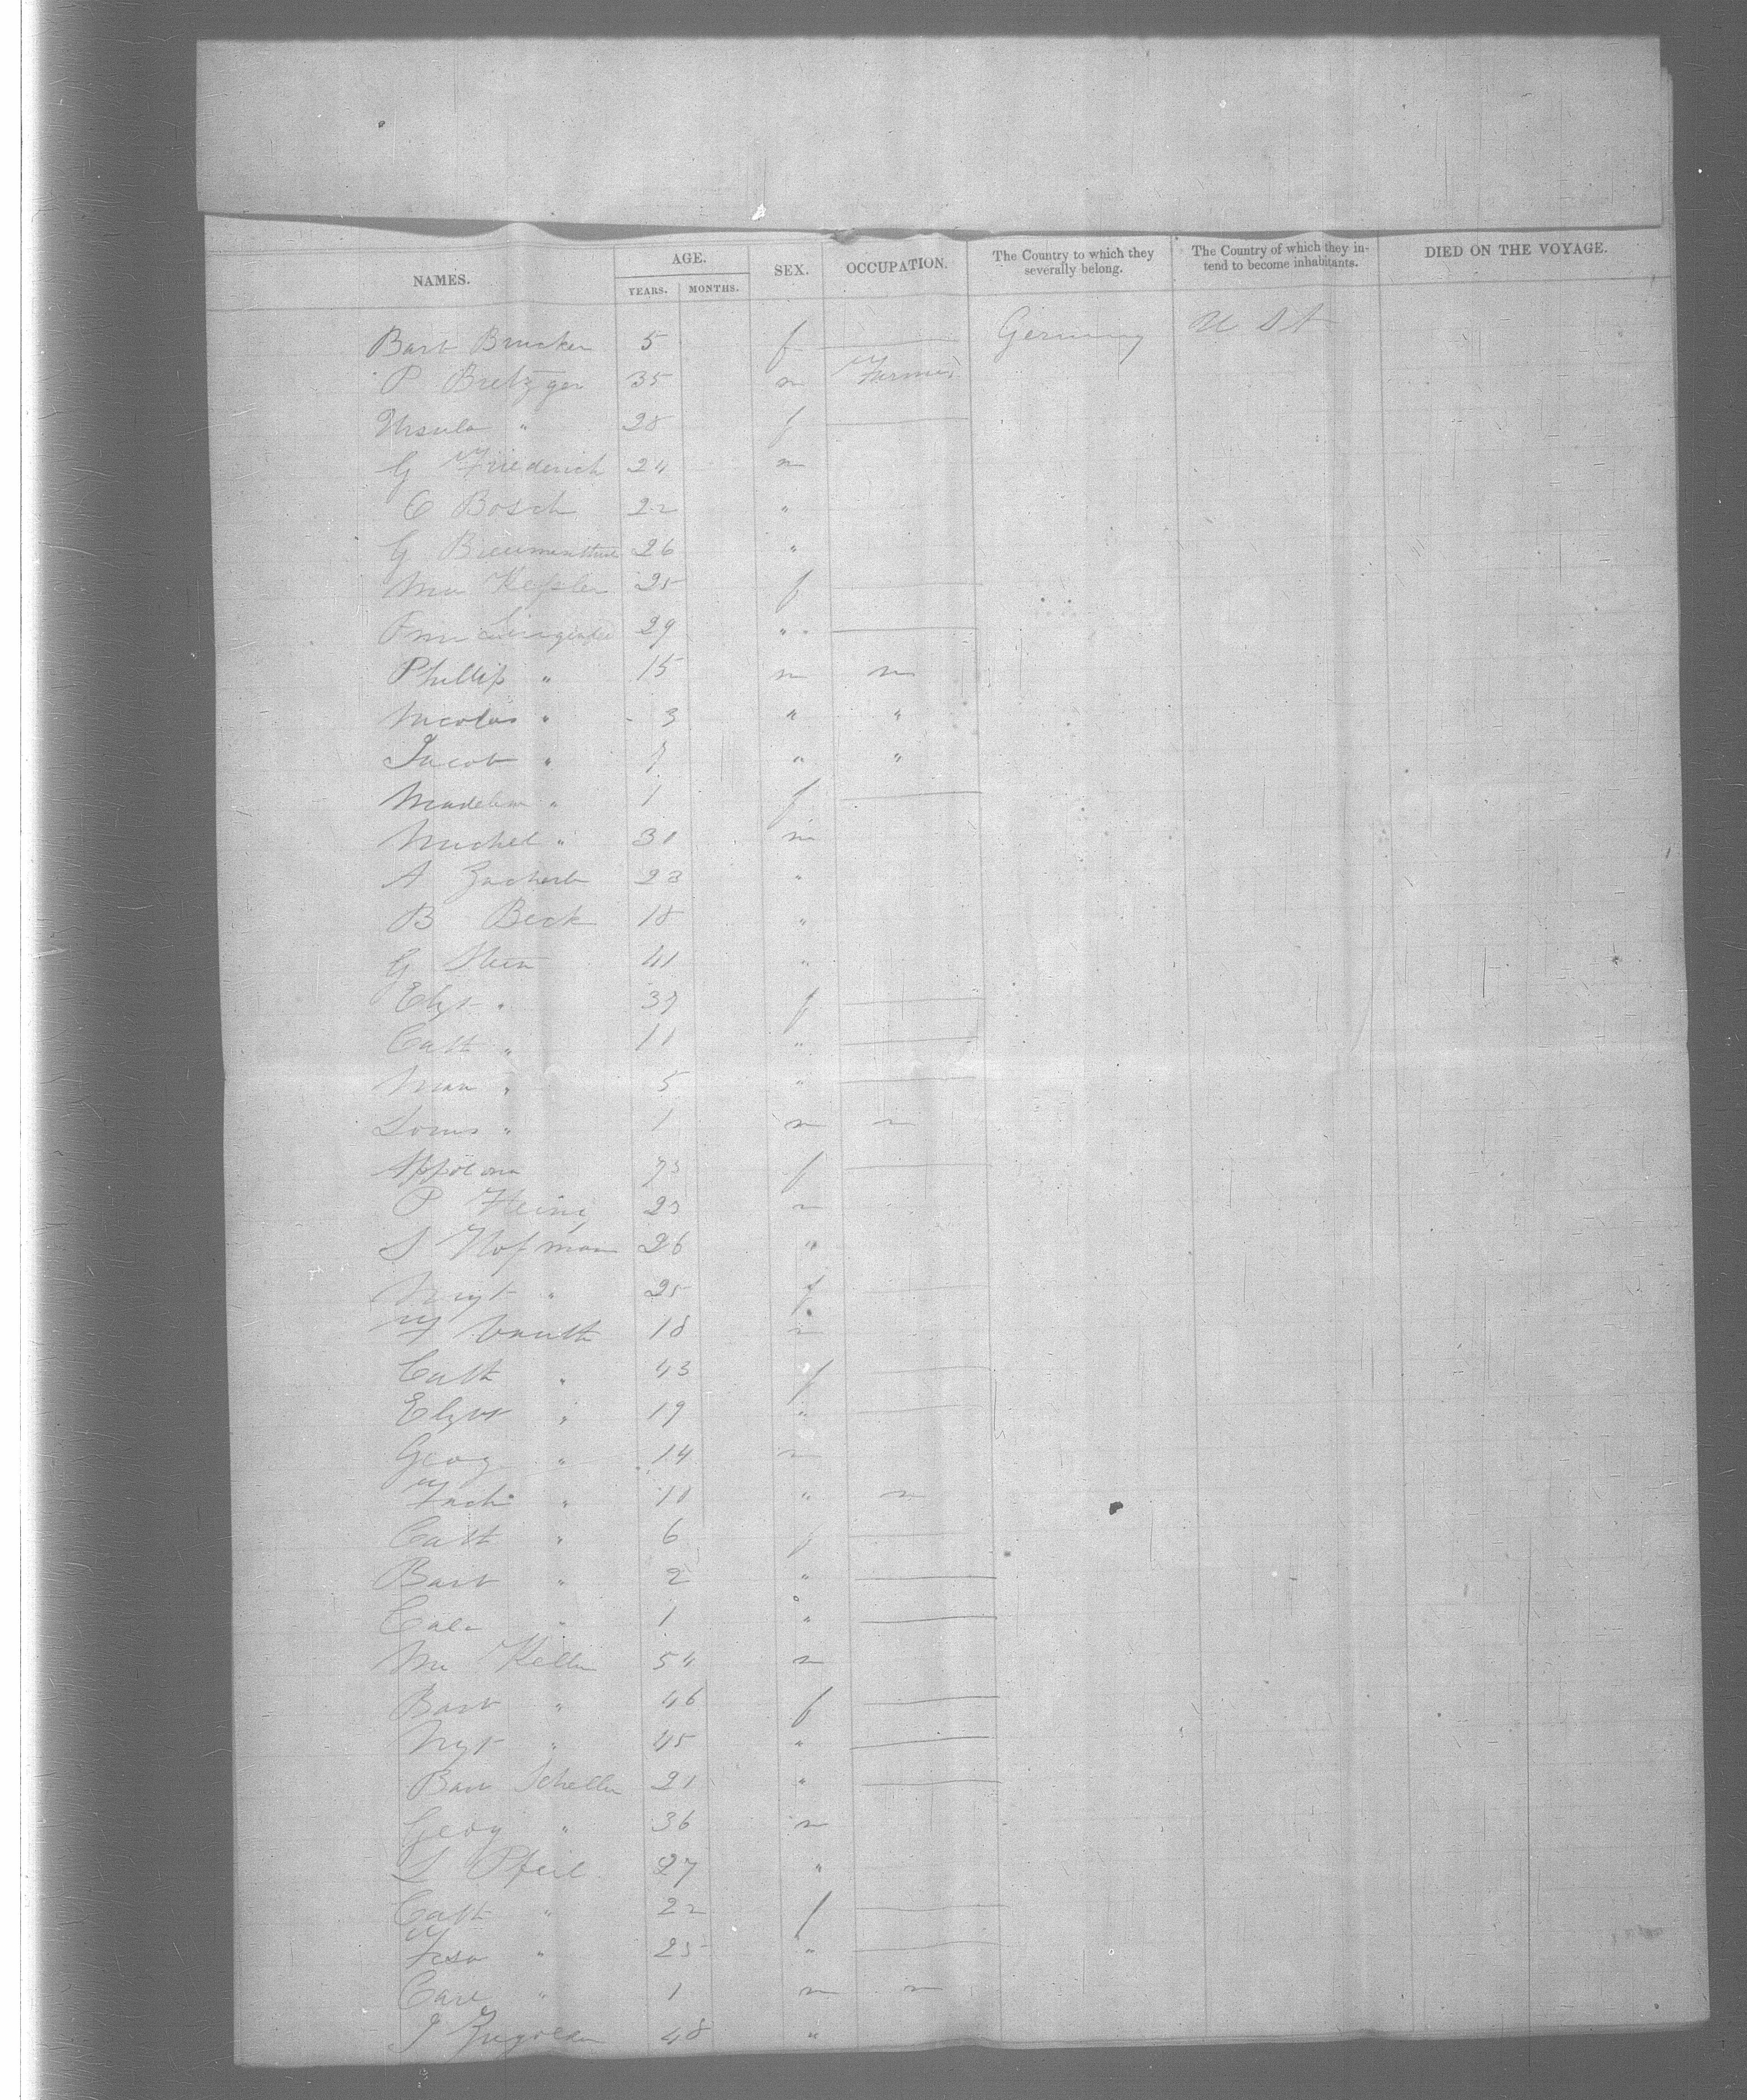 NAMES. AGE. SEX. OCCUPATION. The Country to which they severally belong. The Country of which they intend to become inhabitants. DIED ON THE VOYAGE.
YEARS. MONTHS.
Barb Brucker 5 f — Germany U St
P Bretzger 35 m Farmer
Ursula " 28 f —
G Friederich 24 m
C Bosch 22 "
G 26 "
Mar Kessler 25 f —
29 " —
Phillip " 15 m
Nicolas " 3 " "
Jacob " 7 " "
Madelein " 1 f —
Michel " 31 m
A Zacherl 23 "
B Beck 18 "
G Stein 41 "
Elizt " 37 f —
Cath " 11 " —
Mar " 5 " —
Louis " 1 m
Appolona 73 f —
P Heinz 23 m
S Hofman 26 "
25 f —
Vauth 18 m
Cath " 43 f —
Elizbt " 19 " —
Geog " 14 m
" 10 "
Cath " 6 f —
Barb " 2 " —
" 1 " —
Mr Keller 54 m
Barb " 46 f —
Mgt " 45 " —
Barb Scheller 21 " —
Geog " 36 m
L Pfeil 27 "
Cath " 22 f —
" 25 " —
Carl " 1 m
J 48 "